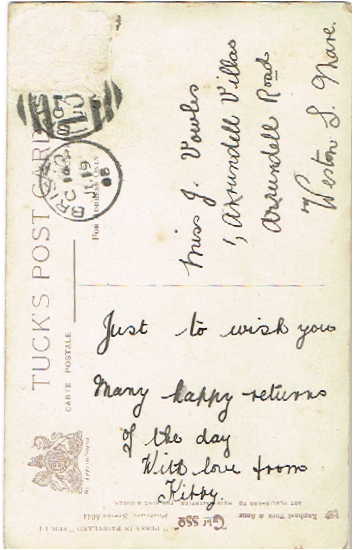 TUCK'S POST CARD
CARTE POSTALE
Miss J. Vowles
1, Arundell Villas
Arundell Road
Weston S. Mare.
Just to wish you
Many happy returns
Of the day
With love from
Kitty.
Raphael Tuck & Sons